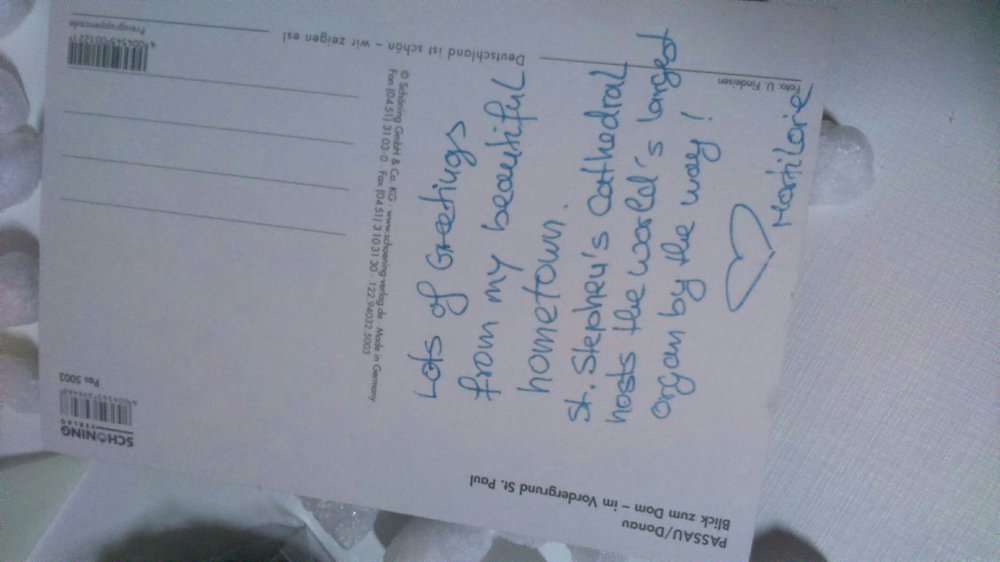 PASSAU/Donau
Blick zum Dom – im Vordergrund St. Paul
Lots of Greetings
from my beautiful
hometown.
St. Stephen's Cathedral
hosts the world's largest
organ by the way!
Foto: U. Findeisen
Deutschland ist schön – wir zeigen es!
© Schöning GmbH & Co. KG · www.schoening-verlag.de · Made in Germany
Fon (04 51) 31 03-0 · Fax (04 51) 3 10 31 30 · 122.94032.5003
Preisgruppencode
Pas 5003
SCHÖNING
VERLAG